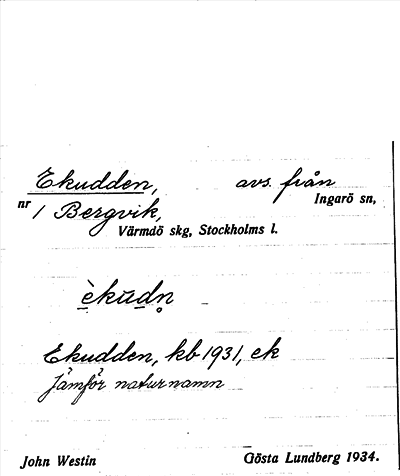 Ekudden, avs. från
nr 1 Bergvik, Ingarö sn,
Värmdö skg, Stockholms l.
èkūdn̥
Ekudden, kb 1931, ek
Jämför naturnamn
John Westin Gösta Lundberg 1934.